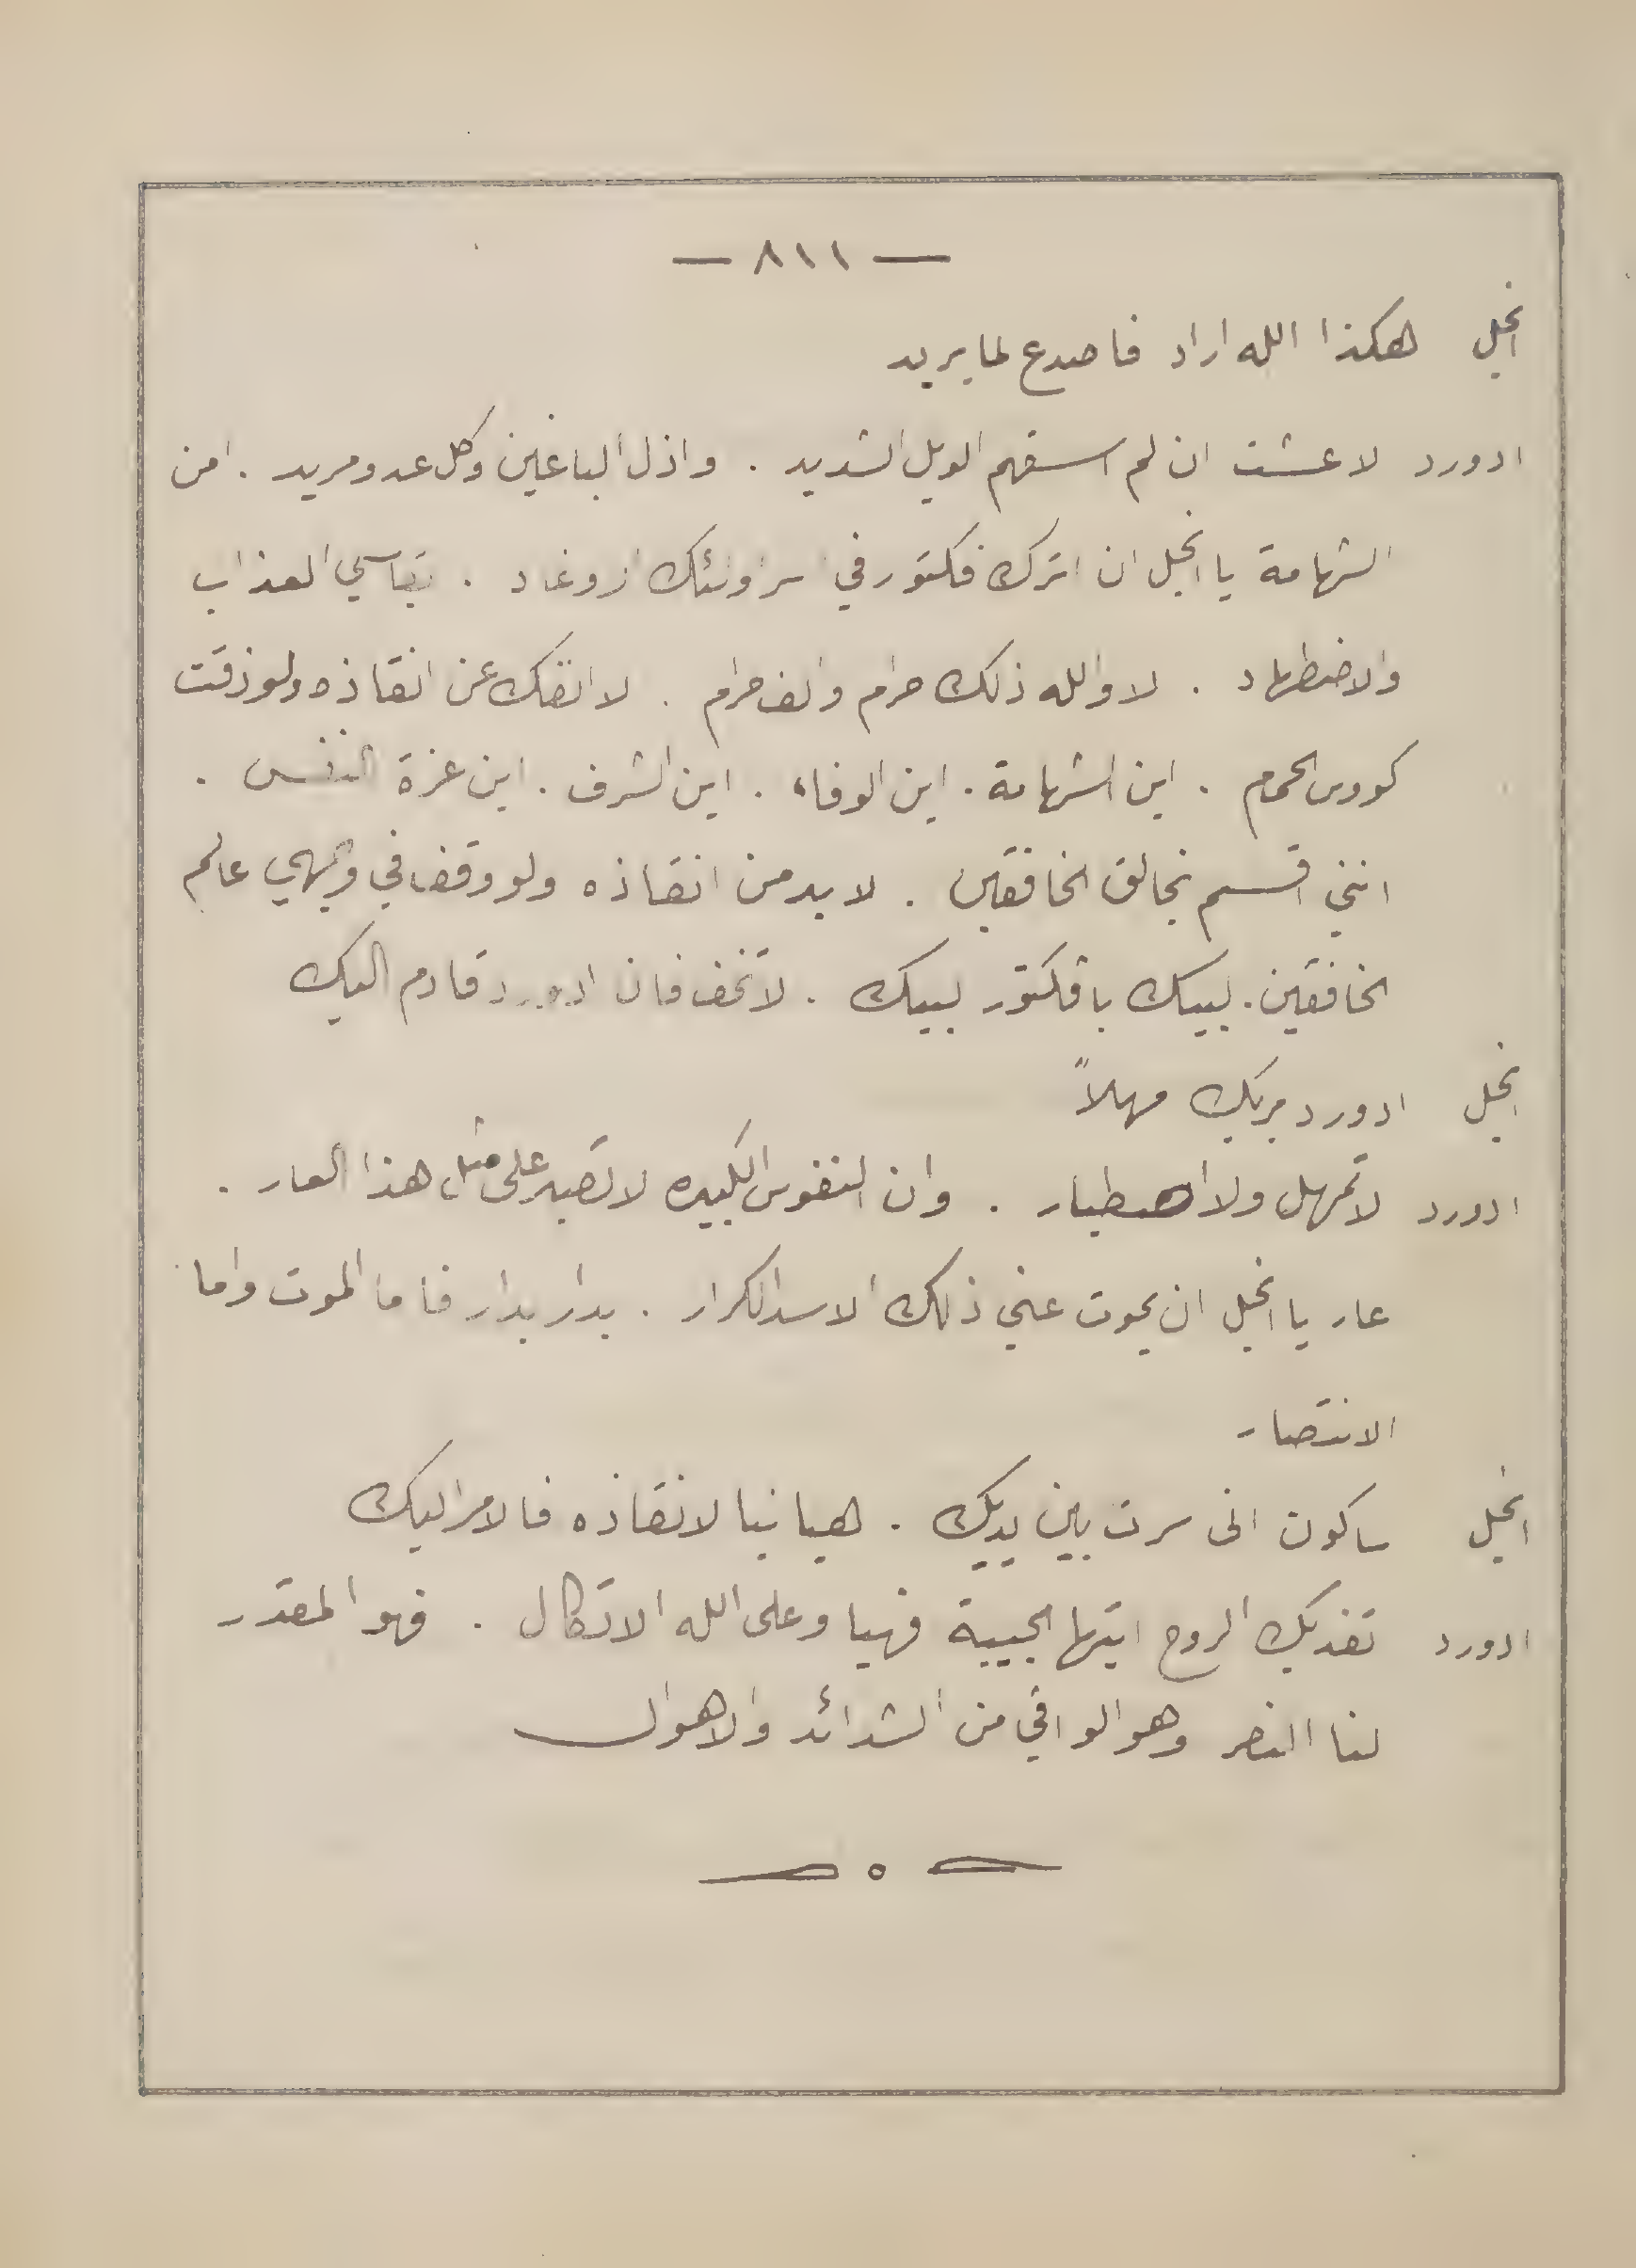 — ٨١١ —
انجل هكذا الله اراد فاصدع لما يريد
ادورد لا عشت ان لم اسقهم الويل الشديد . واذل الباغين وكل عدو مريد . امن
الشهامة يا انجل ان اترك فكتور في اوغاد . يقاسي العذاب
والاضطهاد . لا والله ذلك حرام والف حرام . لا انفك عن انقاذه ولو ذقت
كووس الحمام . اين الشهامة . اين الوفاء . اين الشرف . اين عزة النفس .
انني اقسم بخالق الخافقين . لا بد من انقاذه ولو وقف في وجهي عالم
الخافقين . لبيك يا فكتور لبيك . لا تخف فان ادورد قادم اليك
انجل ادورد بربك مهلاً
ادورد لا تمهل ولا اصطبار . وان النفوس الكبيره لا تصبر على مثل هذا العار .
عار يا انجل ان يموت عني ذلك الاسد الكرار . بدار بدار فاما الموت واما
الانتصار
انجل ساكون انى سرت بين يديك . هيا بنا لانقاذه فالامر اليك
ادورد تفديك الروح ايتها الحبيبة فهيا وعلى الله الاتكال . فهو المقدر
لنا النصر وهو الواقي من الشدائد والاهوال